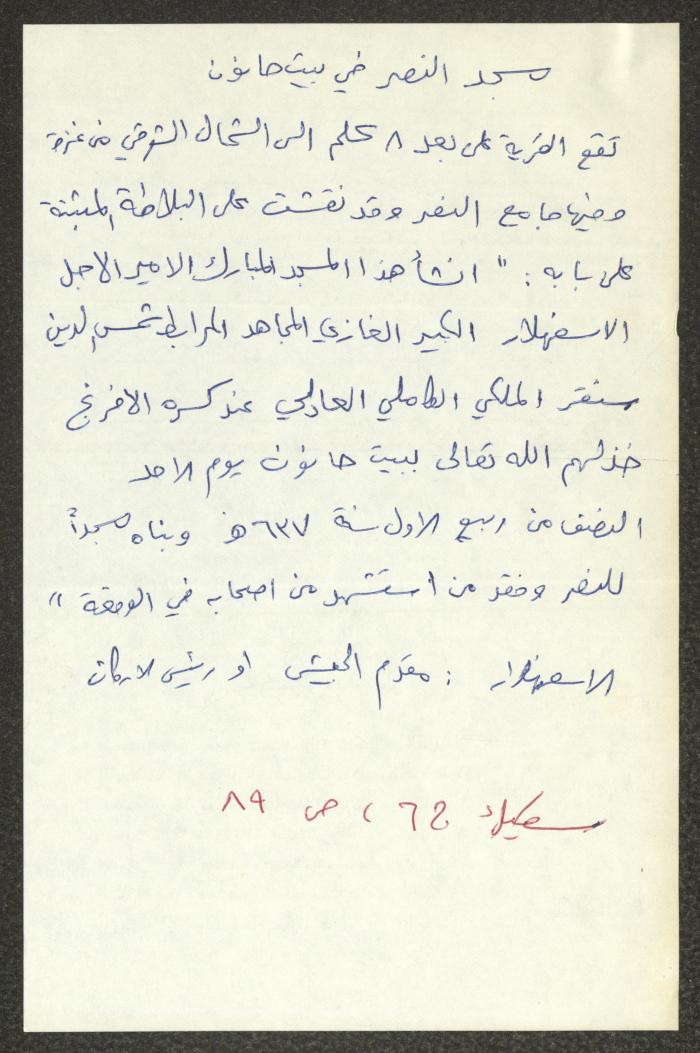 مسجد النصر في بيت حانون
تقع القرية على بعد ٨ كلم الى الشمال الشرقي من غزة
وفيها جامع النصر وقد نقشت على البلاطة المثبتة
على بابه : " انشأ هذا المسجد المبارك الامير الاجل
الاسفهلار الكبير الغازي المجاهد المرابط شمس الدين
سنقر الملكي الكاملي العادلي عند كسره الافرنج
خذلهم الله تعالى ببيت حانون يوم الاحد
النصف من ربيع الاول سنة ٦٣٧ هـ وبناه مسجداً
للنصر وفقد من استشهد من اصحابه في الوقعة "
الاسفهلار : مقدم الجيش او رئيس الاركان
٦٢ ، ص ٨٩